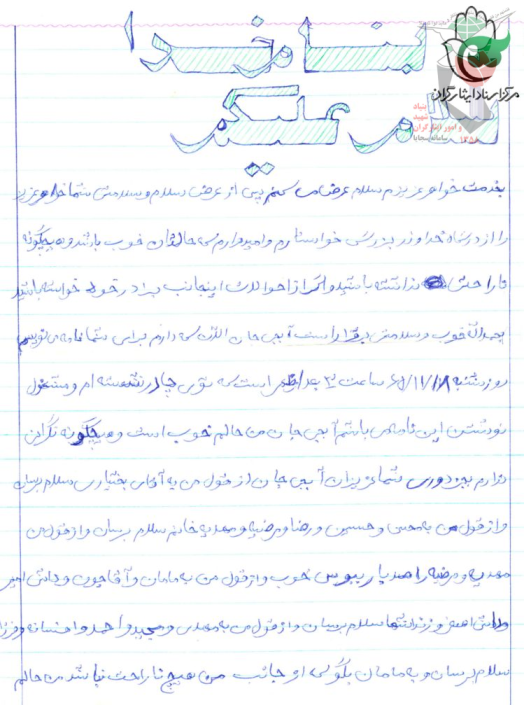 بنام خدا
سلام علیکم
مرکز اسناد ایثارگران
بنیاد
شهید
و امور ایثارگران
سامانه سجایا
بخدمت خواهر عزیزم سلام عرض می کنم پس از عرض سلام و سلامتی شما خواهر عزیز
را از درگاه خداوند بزرگ خواستارم و امیدوارم که حالتان خوب باشد و هیچگونه
ناراحتی نداشته باشید و اگر از احوالات اینجانب برادر خود خواسته باشید
بحمدالله خوب و سلامتی برقرار است آبجی جان الان که دارم برای شما نامه می نویسم
روز شنبه ۶۵/۱۱/۱۸ ساعت ۳ بعد از ظهر است که توی چادر نشسته ام و مشغول
نوشتن این نامه می باشم آبجی جان من حالم خوب است و هیچگونه نگرانی
ندارم بجز دوری شما عزیزان آبجی جان از قول من به آقای بختیاری سلام برسان
و از قول من به مجتبی و حسین و رضا و مرضیه و مهدیه خانم سلام برسان و از قول من
مهدیه و مرضیه را صد بار ببوس خوب و از قول من به مامان و آقاجون و دائی امیر
و دائی اصغر و زندائیها سلام برسان و از قول من به مهدی و مجید و احمد و افسانه و فرزانه
سلام برسان و به مامان بگو که از جانب من هیچ ناراحت نباشد من حالم